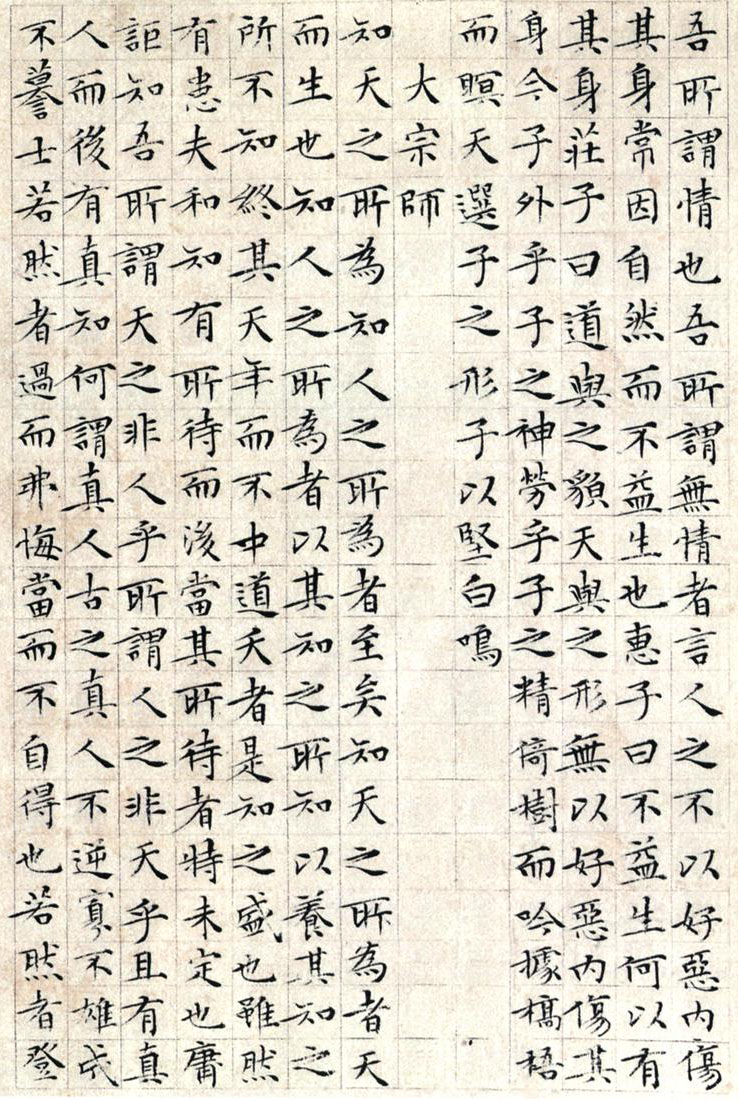 吾所謂情也吾所謂無情者言人之不以好惡內傷
其身常因自然而不益生也惠子曰不益生何以有
其身莊子曰道與之貌天與之形無以好惡內傷其
身今子外乎子之神勞乎子之精倚樹而吟據槁梧
而瞑天選子之形子以堅白鳴
大宗師
知天之所為知人之所為者至矣知天之所為者天
而生也知人之所為者以其知之所知以養其知之
所不知終其天年而不中道夭者是知之盛也雖然
有患夫和知有所待而後當其所待者特未定也庸
詎知吾所謂天之非人乎所謂人之非天乎且有真
人而後有真知何謂真人古之真人不逆寡不雄成
不謩士若然者過而弗悔當而不自得也若然者登